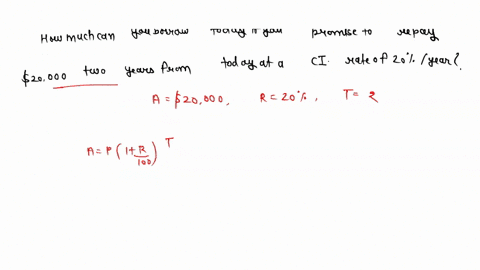 How much can you borrow today if you promise to repay
$20,000 two years from today at a CI. rate of 20% /year?
A = $20,000, R = 20%, T = 2
A = P (1 + R/100)^T